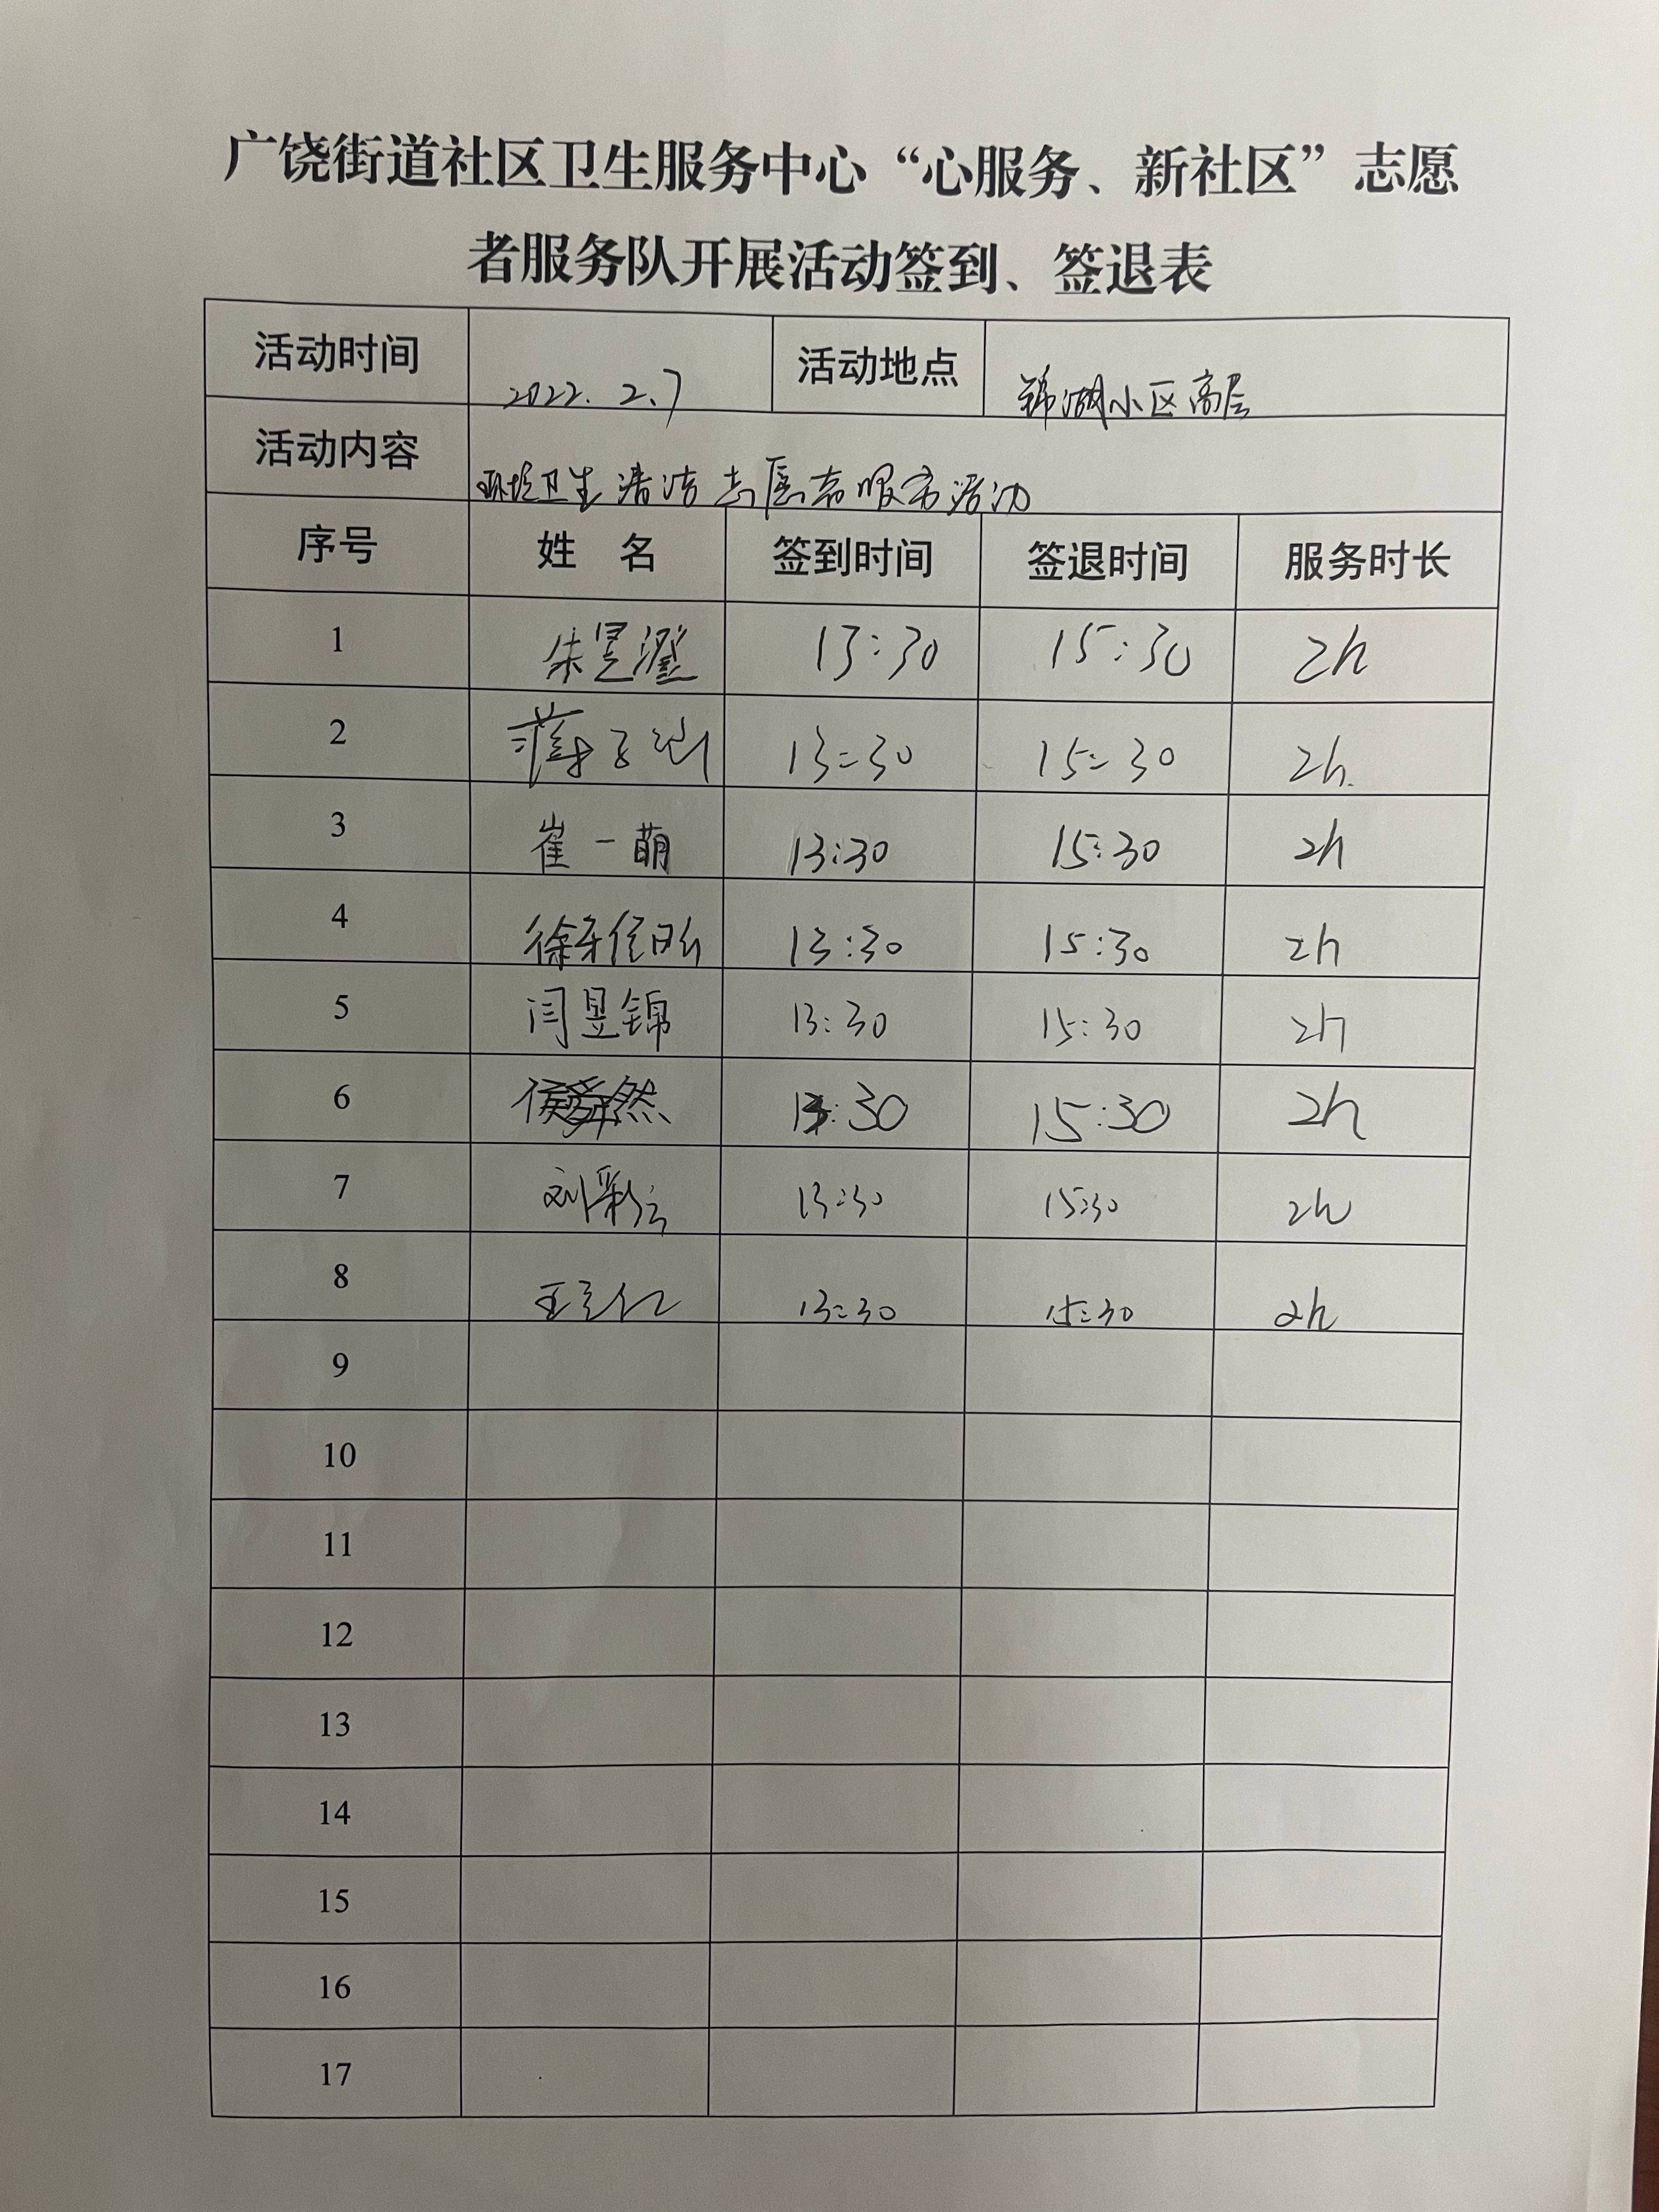 广饶街道社区卫生服务中心“心服务、新社区”志愿
者服务队开展活动签到、签退表
活动时间 2022.2.7 活动地点 锦湖小区高层
活动内容 环境卫生清洁志愿者服务活动
序号 姓 名 签到时间 签退时间 服务时长
1 朱昱瀅 13:30 15:30 2h
2 薄子 13:30 15:30 2h.
3 崔一萌 13:30 15:30 2h
4 徐 13:30 15:30 2h
5 闫昱锦 13:30 15:30 2h
6 侯舜然 13:30 15:30 2h
7 刘彩云 13:30 15:30 2h
8 王 13:30 15:30 2h
9
10
11
12
13
14
15
16
17